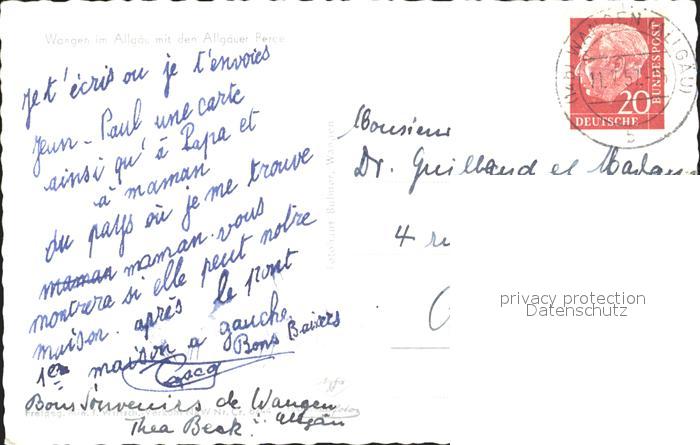 Wangen im Allgäu mit den Allgäuer Berge
Je t'écris ou je t'envoies
Jean-Paul une carte
ainsi qu'à Papa et
à maman
du pays où je me trouve
maman maman vous
montrera si elle peut notre
maison. après le pont
1er maison a gauche.
Bons Baisers
Bons Souvenirs de Wangen
Thea Beck Allgäu
Monsieur
Dr. Guilland et Madam
4 ru
WANGEN (ALLGÄU)
20
DEUTSCHE
BUNDESPOST
privacy protection
Datenschutz